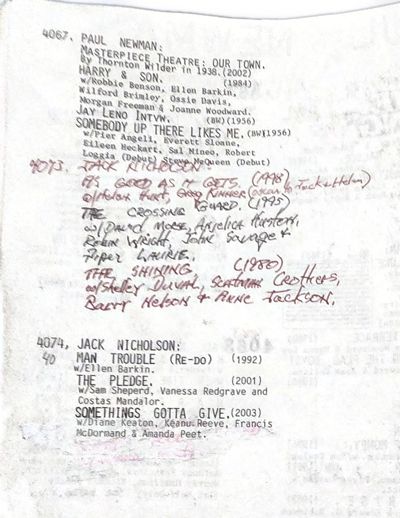 4067. PAUL NEWMAN:
MASTERPIECE THEATRE: OUR TOWN.
By Thornton Wilder in 1938.(2002)
HARRY & SON. (1984)
w/Robbie Benson, Ellen Barkin,
Wilford Brimley, Ossie Davis,
Morgan Freeman & Joanne Woodward.
JAY LENO INTVW. (BW)(1956)
SOMEBODY UP THERE LIKES ME.(BW)(1956)
w/Pier Angeli, Everett Sloane,
Eileen Heckart, Sal Mineo, Robert
Loggia (Debut) Steve McQueen (Debut)
4073. JACK NICHOLSON:
AS GOOD AS it GETS. (1998)
w/Helen Hunt, Greg Kinner (oscar to Jack & Helen)
THE CROSSING GUARD. (1995)
w/David Morse, Anjelica Huston,
Robin Wright, John Savage &
Piper LAURIE.
THE SHINING, (1980)
w/Shelley Duval, Scatman Crothers,
Barry Nelson & Anne Jackson.
4074, JACK NICHOLSON:
40 MAN TROUBLE (RE-DO) (1992)
w/Ellen Barkin.
THE PLEDGE. (2001)
w/Sam Sheperd, Vanessa Redgrave and
Costas Mandalor.
SOMETHINGS GOTTA GIVE.(2003)
w/Diane Keaton, Keanu Reeve, Francis
McDormand & Amanda Peet.